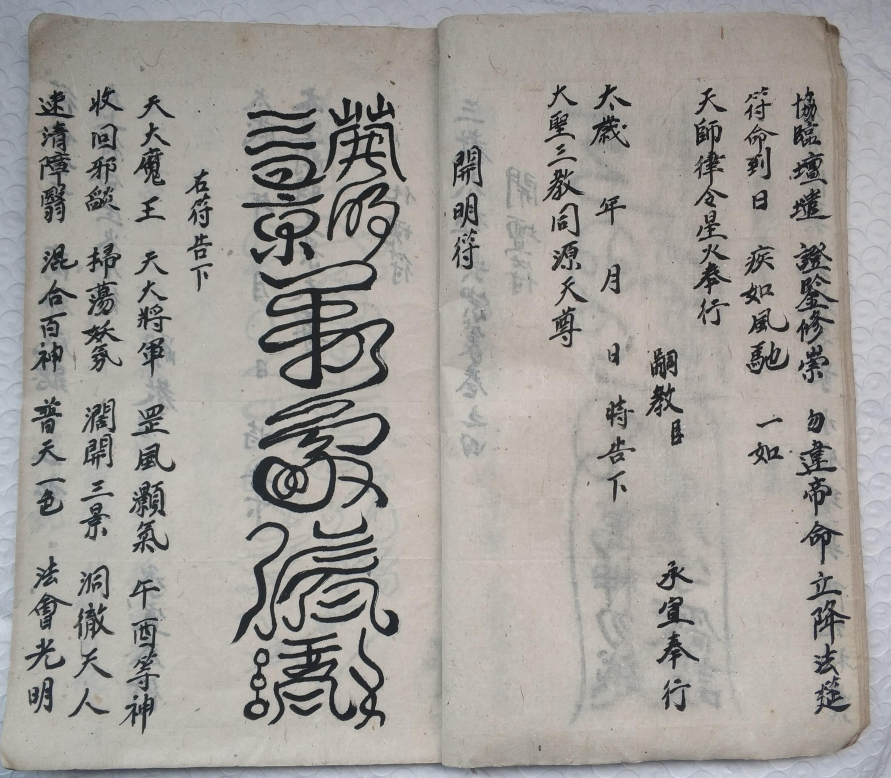 協臨壇墠 證鑒修崇 勿違帝命 立降法筵
符命到日 疾如風馳 一如
天師律令星火奉行
嗣教臣 承宣奉行
太歲 年 月 日 時告下
大聖三教同源天尊
開明符
右符告下
天大魔王 天大將軍 罡風灝氣 午酉等神
收回邪燄 掃蕩妖氛 濶開三景 洞徹天人
速清障翳 混合百神 普天一色 法會光明